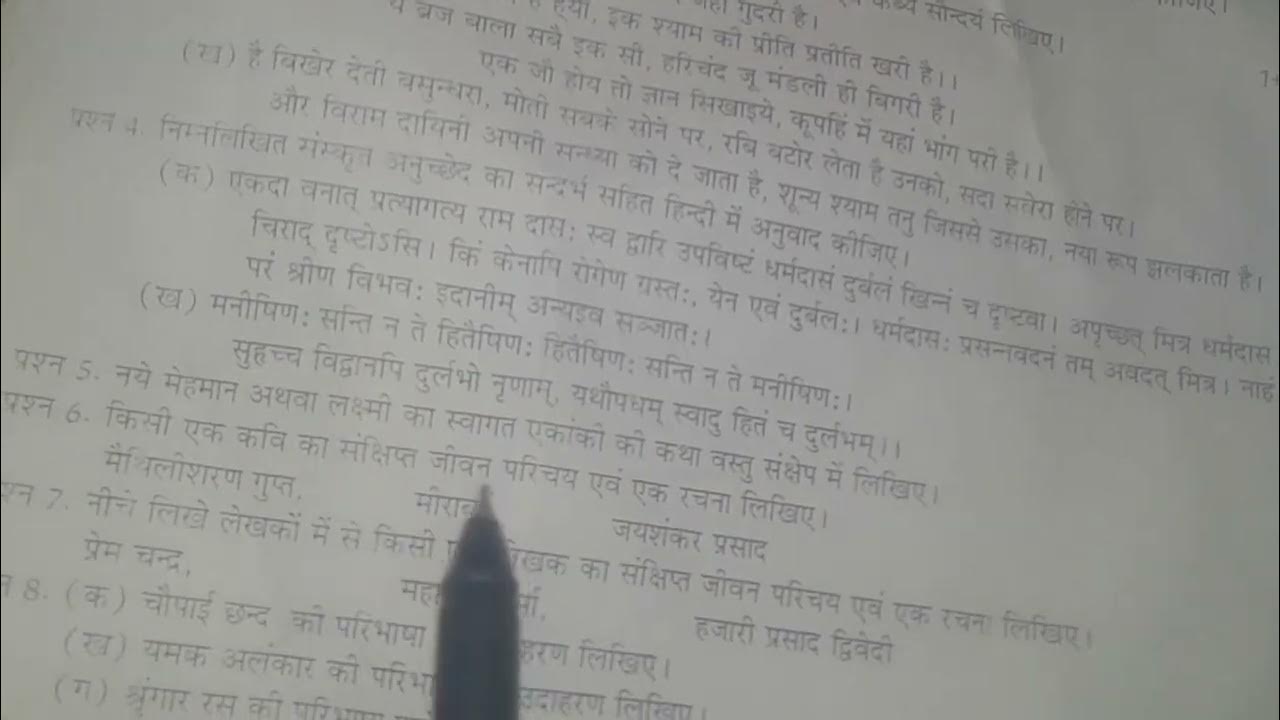 काव्य सौन्दर्य लिखिए।
गुदरी है।
इक श्याम की प्रीति प्रतीति खरी है।।
ब्रज बाला सबै इक सी, हरिचंद जू मंडली ही बिगरी है।
एक जौ होय तो ज्ञान सिखाइये, कूपहिं में यहां भांग परी है।।
(ख) है बिखेर देती वसुन्धरा, मोती सबके सोने पर, रबि बटोर लेता है उनको, सदा सवेरा होने पर।
और विराम दायिनी अपनी सन्ध्या को दे जाता है, शून्य श्याम तनु जिससे उसका, नया रूप झलकाता है।
प्रश्न 4. निम्नलिखित संस्कृत अनुच्छेद का सन्दर्भ सहित हिन्दी में अनुवाद कीजिए।
(क) एकदा वनात् प्रत्यागत्य राम दासः स्व द्वारि उपविष्टं धर्मदासं दुर्बलं खिन्नं च दृष्टवा। अपृच्छत् मित्र धर्मदास
चिराद् दृष्टोऽसि। किं केनापि रोगेण ग्रस्तः, येन एवं दुर्बलः। धर्मदासः प्रसन्नवदनं तम् अवदत् मित्र। नाहं
परं श्रीण विभवः इदानीम् अन्यइव सञ्जातः।
(ख) मनीषिणः सन्ति न ते हितैषिणः हितैषिणः सन्ति न ते मनीषिणः।
सुहृच्च विद्वानपि दुर्लभो नृणाम्, यथौषधम् स्वादु हितं च दुर्लभम्।।
प्रश्न 5. नये मेहमान अथवा लक्ष्मी का स्वागत एकांकी की कथा वस्तु संक्षेप में लिखिए।
प्रश्न 6. किसी एक कवि का संक्षिप्त जीवन परिचय एवं एक रचना लिखिए।
मैथिलीशरण गुप्त, जयशंकर प्रसाद
श्न 7. नीचे लिखे लेखकों में से किसी का संक्षिप्त जीवन परिचय एवं एक रचना लिखिए।
प्रेम चन्द्र, हजारी प्रसाद द्विवेदी
न 8. (क) चौपाई छन्द की परिभाषा लिखिए।
(ख) यमक अलंकार की उदाहरण लिखिए।
(ग) श्रृंगार रस की परिभाषा